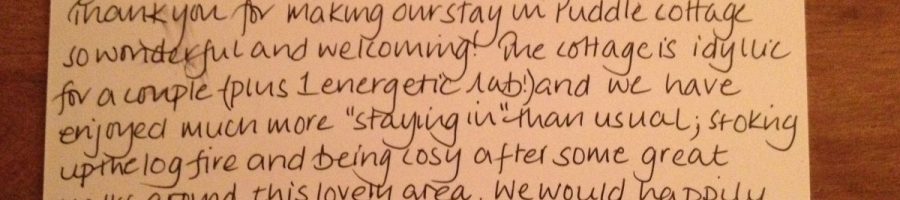 Thank you for making our stay in Puddle cottage
so wonderful and welcoming! The cottage is idyllic
for a couple (plus 1 energetic lab!) and we have
enjoyed much more "staying in" than usual; stoking
up the log fire and being cosy after some great
walks around this lovely area. We would happily